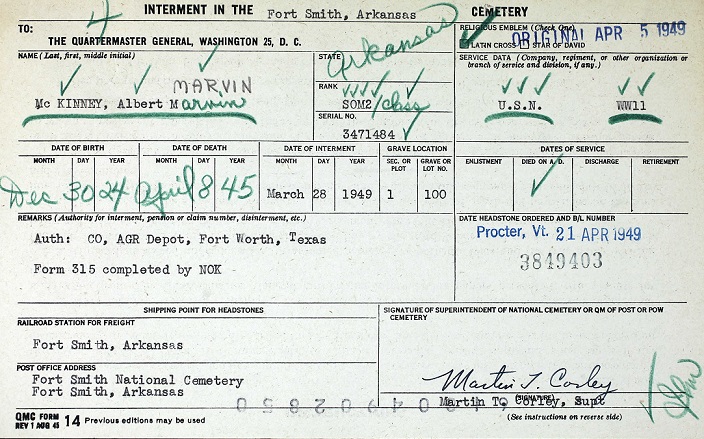 4
INTERMENT IN THE Fort Smith, Arkansas CEMETERY
TO:
THE QUARTERMASTER GENERAL, WASHINGTON 25, D. C.
RELIGIOUS EMBLEM (Check One)
LATIN CROSS STAR OF DAVID
ORIGINAL APR 5 1949
NAME (Last, first, middle initial)
MARVIN
Mc KINNEY, Albert Marvin
STATE
Arkansas
RANK
SOM2/class
SERIAL NO.
3471484
SERVICE DATA (Company, regiment, or other organization or branch of service and division, if any.)
U.S.N. WW11
DATE OF BIRTH DATE OF DEATH DATE OF INTERMENT GRAVE LOCATION DATES OF SERVICE
MONTH DAY YEAR MONTH DAY YEAR MONTH DAY YEAR SEC. OR PLOT GRAVE OR LOT NO. ENLISTMENT DIED ON A.D. DISCHARGE RETIREMENT
Dec 30 24 April 8 45 March 28 1949 1 100
REMARKS (Authority for interment, pension or claim number, disinterment, etc.)
Auth: CO, AGR Depot, Fort Worth, Texas
Form 315 completed by NOK
DATE HEADSTONE ORDERED AND B/L NUMBER
Procter, Vt. 21 APR 1949
3849403
SHIPPING POINT FOR HEADSTONES
RAILROAD STATION FOR FREIGHT
Fort Smith, Arkansas
POST OFFICE ADDRESS
Fort Smith National Cemetery
Fort Smith, Arkansas
SIGNATURE OF SUPERINTENDENT OF NATIONAL CEMETERY OR QM OF POST OR POW CEMETERY
Martin T. Corley
(SIGNATURE)
Martin T. Corley, Supt
QMC FORM
REV 1 AUG 45 14 Previous editions may be used
(See instructions on reverse side)